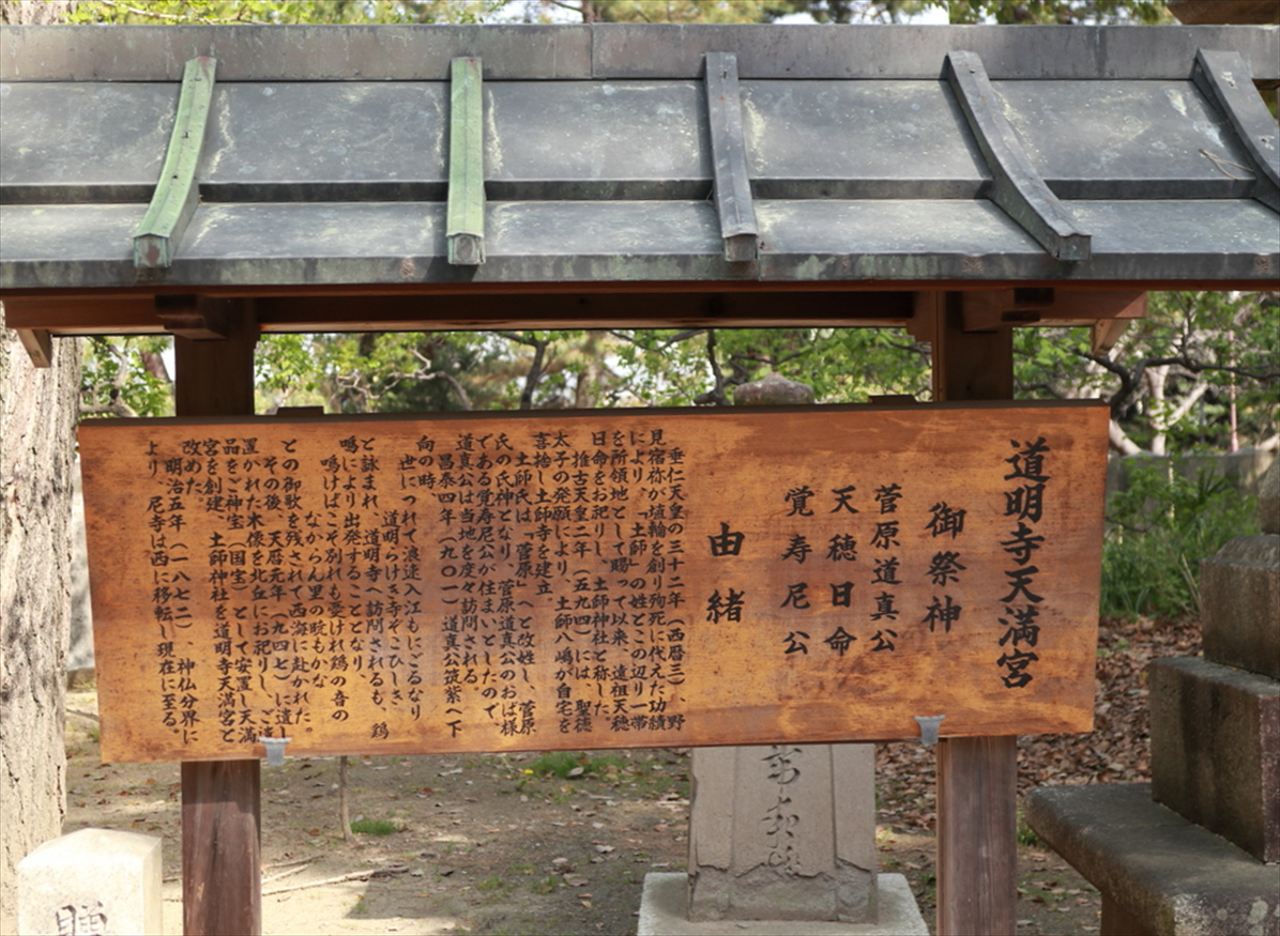 道明寺天満宮
御祭神
菅原道真公
天穂日命
覚寿尼公
由緒
垂仁天皇の三十二年（西暦三）、野
見宿祢が埴輪を創り殉死に代えた功績
により、「土師」の姓とこの辺り一帯
を所領地として賜って以来、遠祖天穂
日命をお祀りし、土師神社と称した。
推古天皇二年（五九四）には、聖徳
太子の発願により、土師八嶋が自宅を
喜捨し土師寺を建立。
土師氏は「菅原」へと改姓し、菅原
氏の氏神となり、菅原道真公のおば様
である覚寿尼公が住まいとしたので、
道真公は当地を度々訪問される。
昌泰四年（九〇一）道真公筑紫へ下
向の時、
世につれて浪速入江もにごるなり
道明らけき寺ぞこひしき
と詠まれ、道明寺へ訪問されるも、鶏
鳴により出発することとなり、
鳴けばこそ別れも憂けれ鶏の音の
なからん里の暁もかな
との御歌を残されて西海に赴かれた。
その後、天暦元年（九四七）に遺し
置かれた木像を北丘にお祀りし、ご遺
品をご神宝（国宝）として安置し天満
宮を創建、土師神社を道明寺天満宮と
改めた。
明治五年（一八七二）、神仏分界に
より、尼寺は西に移転し現在に至る。
贈